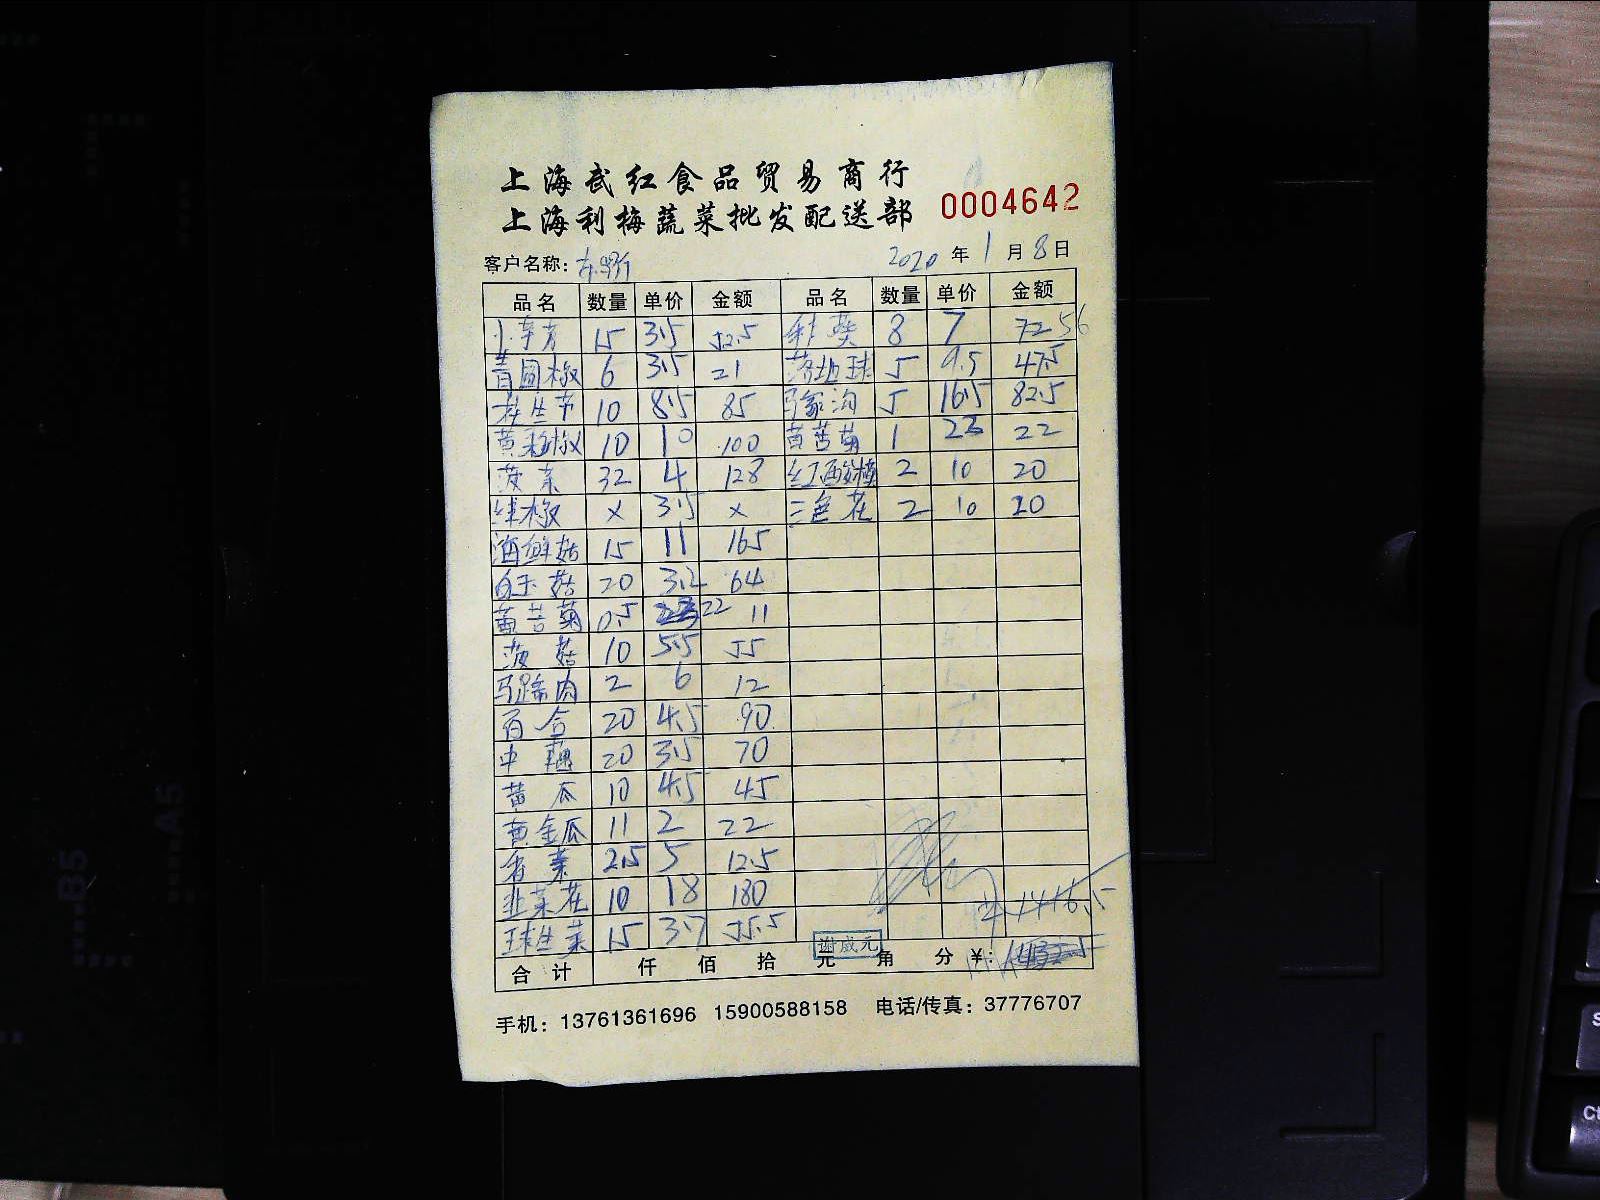 上海武红食品贸易商行
上海利梅蔬菜批发配送部
0004642
客户名称:
2020 年 1 月 8 日
品名 数量 单价 金额 品名 数量 单价 金额
15 3.5 52.5 8 7 72 56
青圆椒 6 3.5 21 落地球 5 9.5 47.5
10 8.5 85 5 16.5 82.5
黄彩椒 10 10 100 黄苦菊 1 23 22
菠菜 32 4 128 2 10 20
x 3.5 x 三色花 2 10 20
海鲜菇 15 11 165
白玉菇 20 3.2 64
黄苦菊 0.5 22 11
菇 10 5.5 55
马蹄肉 2 6 12
百合 20 4.5 90
中藕 20 3.5 70
黄瓜 10 4.5 45
黄金瓜 11 2 22
香菜 2.5 5 12.5
韭菜花 10 18 180
球生菜 15 3.7 55.5
1416.5
谢成元
合计 仟 佰 拾 元 角 分 ¥:
手机: 13761361696 15900588158 电话/传真: 37776707
B5
A5